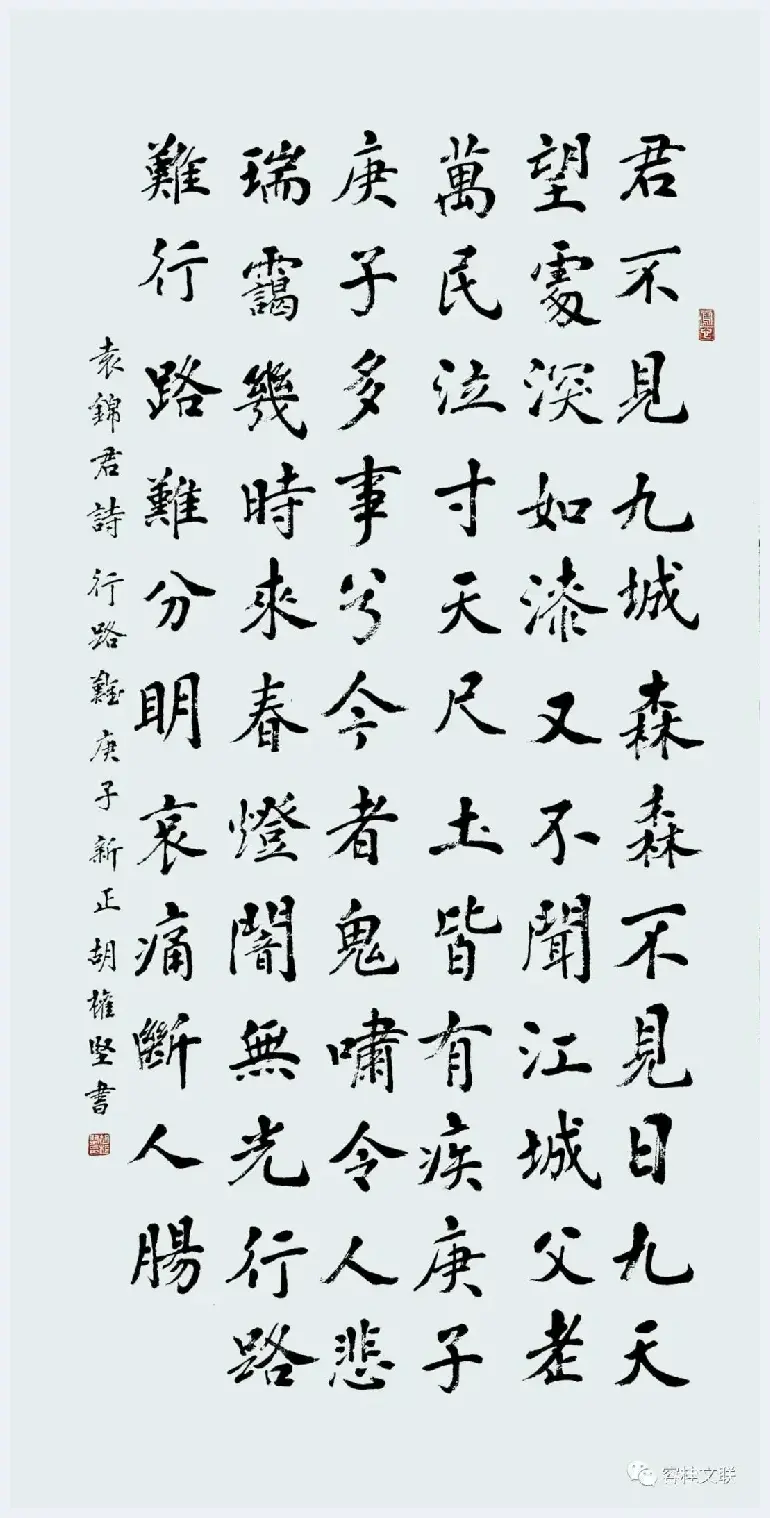 君不見九城森森不見日九天
望處深如漆又不聞江城父老
萬民泣寸天尺土皆有疾庚子
庚子多事兮今者鬼嘯令人悲
瑞靄幾時來春燈闇無光行路
難行路難分明哀痛斷人腸
袁錦君詩 行路難 庚子新正 胡權堅書
容桂文联